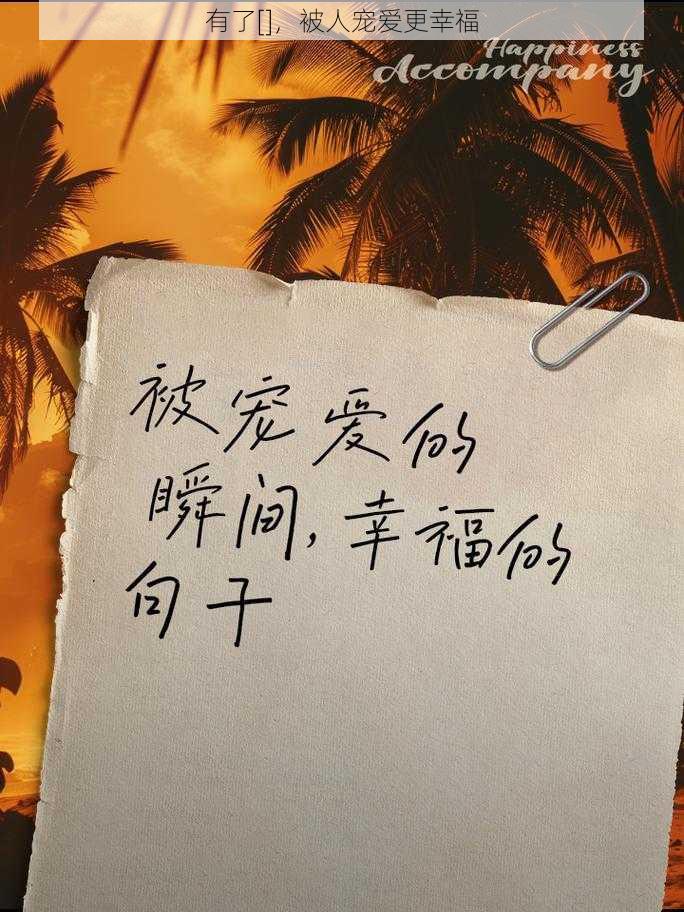 有了[]，被人宠爱更幸福
Happiness
Accompany
被宠爱的
瞬间,幸福的
句子